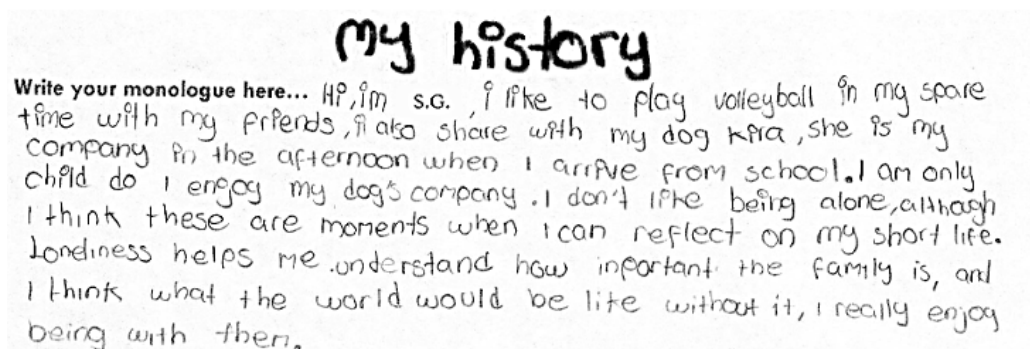 my history
Write your monologue here... Hi, im s.G. i like to play volleyball in my spare
time with my friends, i also share with my dog kira, she is my
company in the afternoon when I arrive from school. I am only
child do I engoy my dog's company. I don't like being alone, although
I think these are moments when I can reflect on my short life.
Londiness helps me understand how inportant the family is, and
I think what the world would be like without it, I really enjoy
being with then.